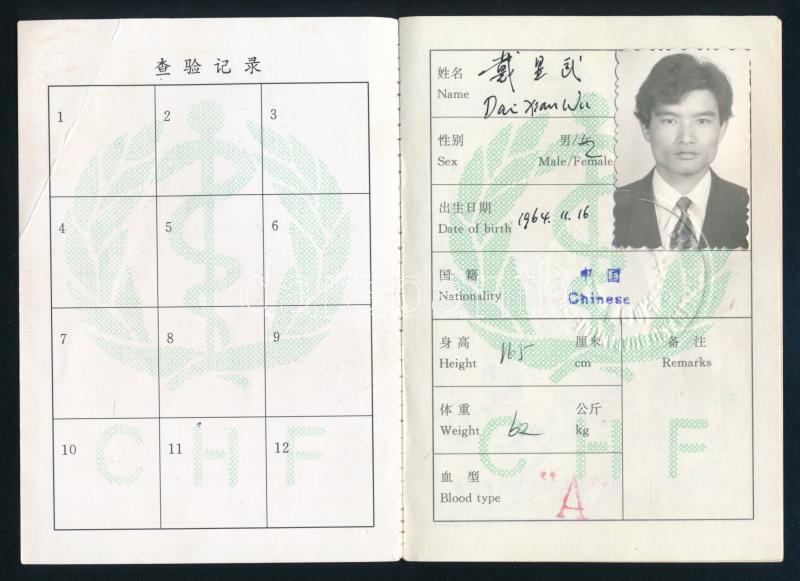 查验记录
1 2 3
4 5 6
7 8 9
10 11 12
CHF
姓名 戴显武
Name Dai Xian Wu
性别 男/女
Sex Male/Female
出生日期
Date of birth 1964.11.16
国籍 中国
Nationality Chinese
身高 165 厘米 备注
Height cm Remarks
体重 62 公斤
Weight kg
CHF
血型 "A"
Blood type